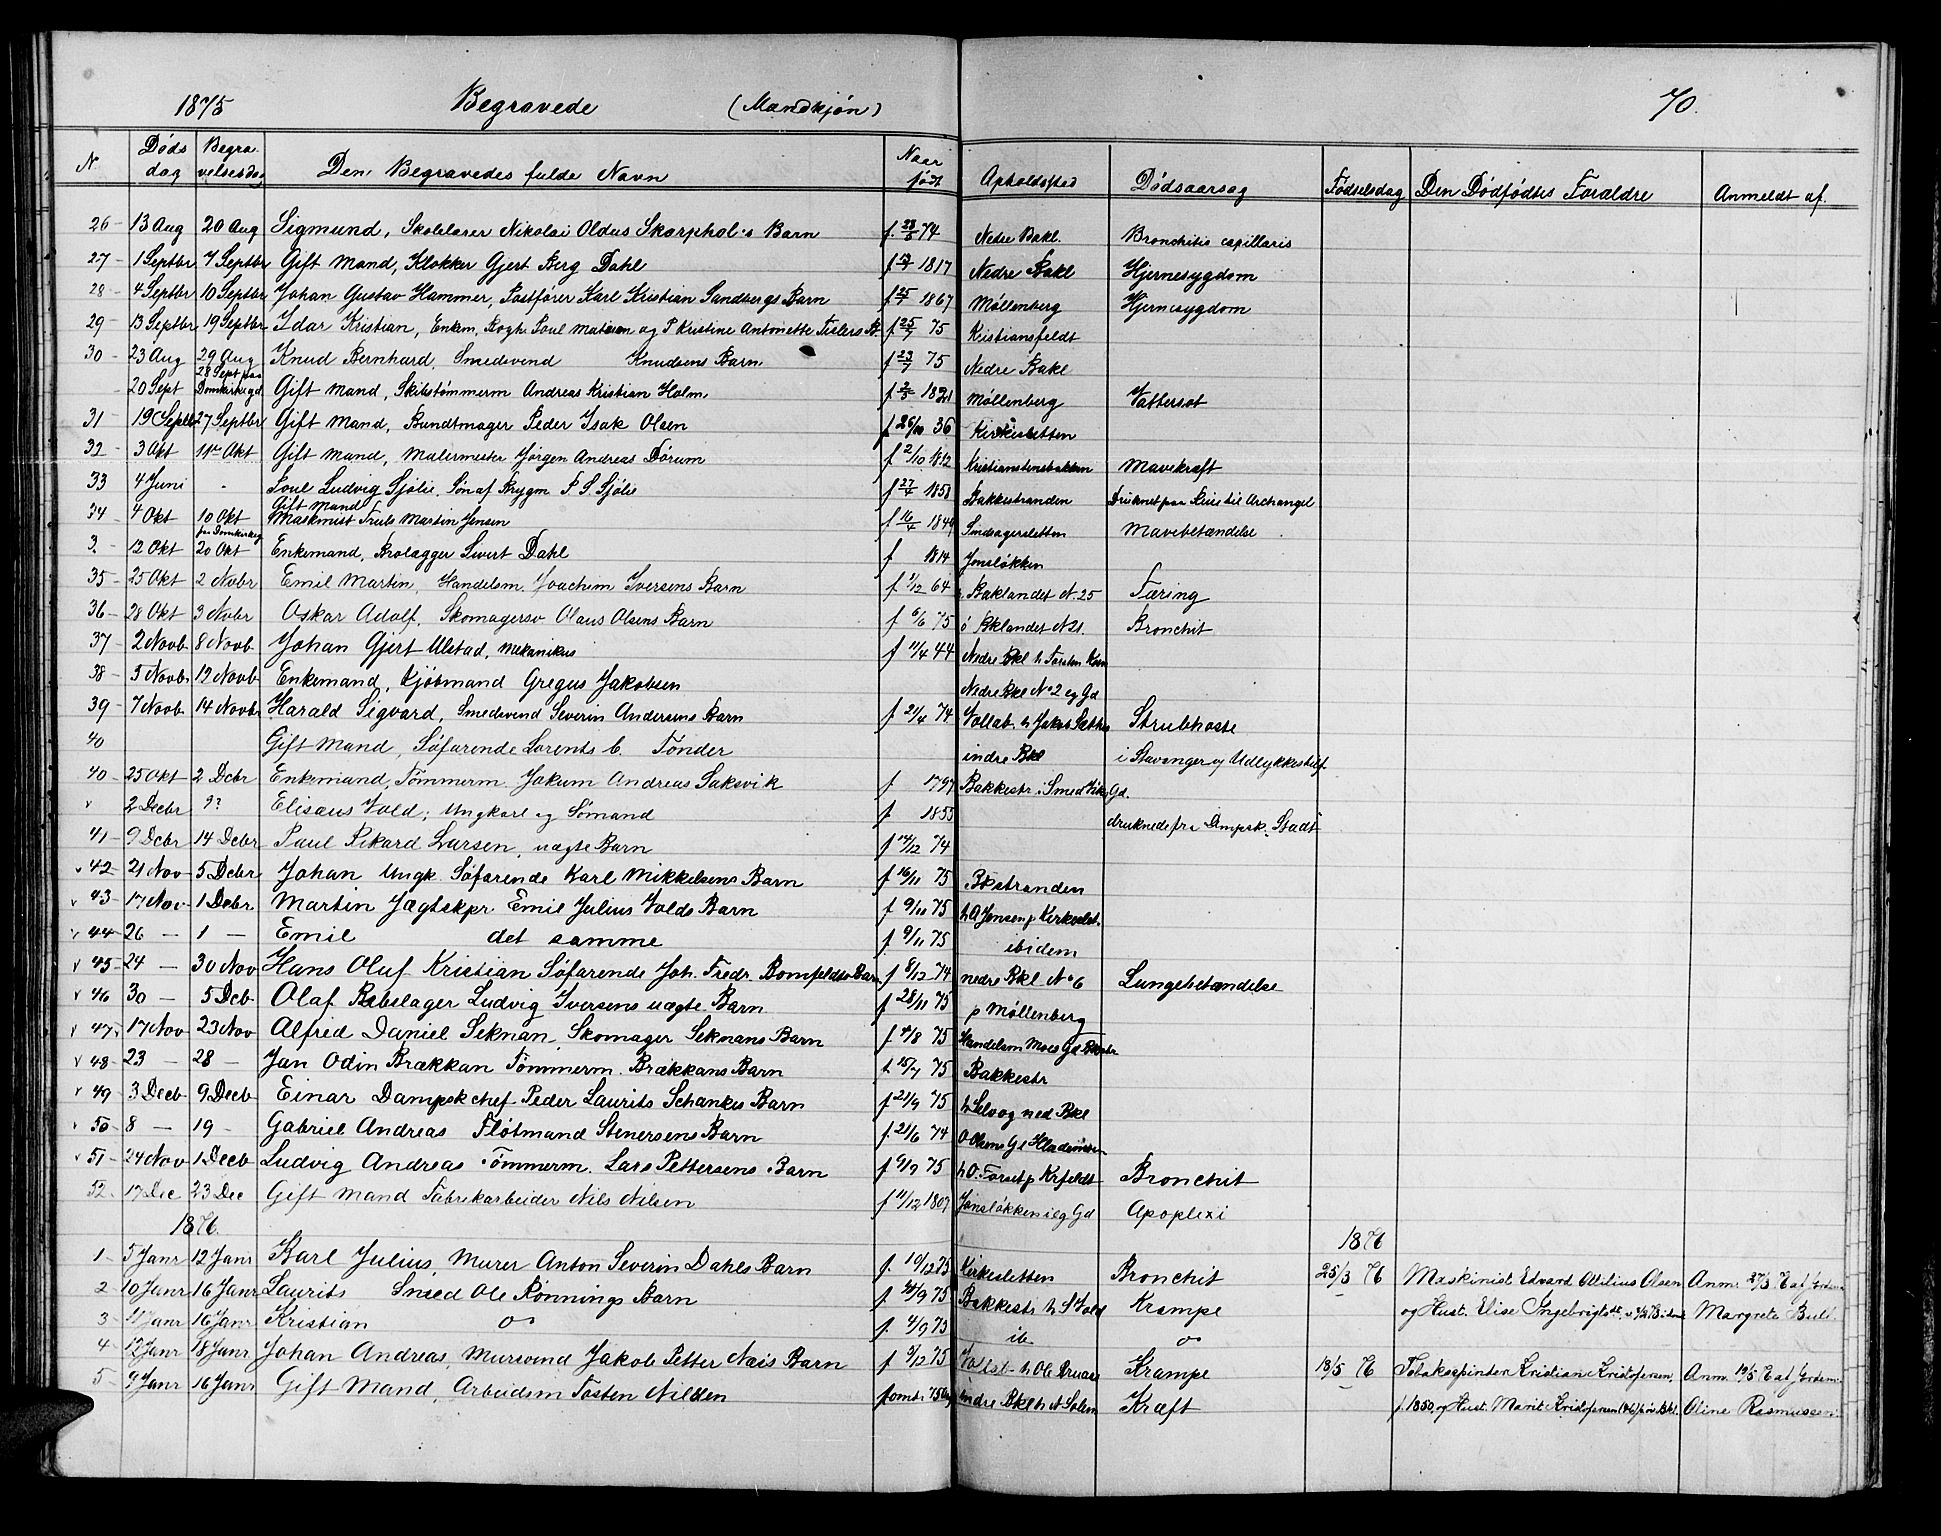 1875 Begravede (Mandkjøn) 70.
N. Døds dag Begra- velsesdag Den Begravedes fulde Navn Naar født Opholdsted Dødsaarsag Fødselsdag Den Dødfødtes Foraldre Anmeldt af.
26 - 13 Aug 20 Aug Sigmund, Skolelærer Nikolai Oldus Skarphol's Barn f. 74 Nedre Bakl. Bronchitis capillaris
27 - 1 Septbr 7 Septbr Gift Mand, Klokker Gjert Berg Dahl f 1817 Nedre Bakl Hjernesygdom
28 - 4 Septbr 10 Septbr Johan Gustav Hammer, Postfører Karl Kristian Sandbergs Barn f 25/7 1867 Møllenberg Hjernesygdom
29 - 13 Septbr 19 Septbr Idar Kristian, Enkm, Poul og P Kristine Antonette f 25/7 75 Kristiansfeldt
30 - 23 Aug 29 Aug Knud Bernhard, Smedsvend Knudsens Barn f 23/7 75 Nedre Bakl
20 Sept 28 Sept paa Domkirkegd Gift Mand, Skibstømmerm Andreas Kristian Holm f Møllenberg Vattersot
31 19 Septbr 27 Septbr Gift Mand, Bundtmager Peder Isak Olsen f 26/10 36 Kirkesletten
32 - 3 Okt 11te Okt Gift Mand, Malermester Jørgen Andreas Dørum f 2/10 1812 Kristianstensbakken Mavekræft
33 4 Juni - Poul Ludvig Sjølie, Søn af Brygm P. S. Sjølie f 27/4 1858 Bakkestranden Druknet paa Reise til Archangel
34 - 4 Okt 10 Okt Gift Mand Maskinist Truls Martin Jensen f 16/4 1849 Mavebetændelse
3. - 12 Okt paa Domkirkeg 20 Okt Enkemand, Brolægger Sivert Dahl f 1814 Jonsløkken
35 - 25 Okt 2 Novbr Emil Martin, Handelsm. Joachim Iversens Barn f 1/12 64 Baklandet N. 25 Tæring
36 - 28 Okt 3 Novbr Oskar Adolf, Skomagersv Olaus Olsens Barn f 6/6 75 ø Bklandet N21. Bronchit
37 2 Novb 8 Novb Johan Gjert Ulstad, Mekanikus f 11/4 44 Nedre Bkl h Torsten
38 - 5 Novb. 12 Novb Enkemand, Kjøbmand Gregus Jakobsen Nedre Bkl No 2 eg Gd
39 - 7 Novb. 14 Novb. Harald Sigvard, Smedsvend Severin Andersens Barn f 21/4 74 Vollab. h Jakob Strubhoste
40 Gift Mand, Søfarende Lorents C. Tønder indre Bkl i Stavanger
40 - 25 Okt 2 Dcbr Enkemand, Tømmerm Jakum Andreas Saksvik f 1797 Bakkestr. i Smed Gd.
v 2 Decbr 9? Elisæus Vold, Ungkarl og Sømand f 1855 druknede fra Dmpsk. Stadt
41 - 9 Dcbr 14 Dcbr Paul Rikard Larsen, uægte Barn f 14/12 74
v 42 - 21 Nov 5 Dcbr Johan Ungk Søfarende Karl Mikkelsens Barn f 16/11 75 Bkstranden
v 43 - 17 Nov 1 Dcbr Martin Jægtskpr Emil Julius Volds Barn f 9/11 75 h A Jensen p Kirkeslet.
v 44 - 26 - 1 - Emil det samme f. 9/11 75 ibidem
v 45 - 24 - 30 Nov Hans Oluf Kristian Søfarende Joh. Fredr. Bomfeldts Barn f 8/12 74 nedre Bkl No 6 Lungebetændelse
v 46 30 - 5 Dcb Olaf Rebslager Ludvig Iversens uægte Barn f 28/11 75 p Møllenberg
v 47 17 Nov 23 Nov Alfred Daniel Seknan, Skomager Seknans Barn f 75 Handelsm Moes Gd
v 48 - 23 - 28 - Jan Odin Brækkan Tømmerm. Brækkans Barn f. 15/7 75 Bakkestr
v 49 3 Decb 9 Decb Einar Dampskchef Peder Laurits Schankes Barn f 21/9 75 h ned Bkl
v 50 - 8 - 19 - Gabriel Andreas Fløtmand Stenersens Barn f. 21/6 74 O Olsens Gd
v 51 - 24 Nov 1 Decb Ludvig Andreas Tømmerm. Lars Pettersens Barn f 9/9 75 h O. p Krfeldt Bronchit
52. 17 Dec 23 Dec Gift Mand Fabrikarbeider Nils Nilsen f 11/12 1807 Jonsløkken i eg Gd Apoplexi
1876. 1876
1 - 5 Janr 12 Janr Karl Julius, Murer Anton Severin Dahls Barn f. 10/12 75 Kirkesletten Bronchit 25/3 76 Maskinist Edvard Ottilius Olsen Anm. 27/3 76 af Jordm
2 10 Janr 16 Janr Laurits Smed Ole Rønnings Barn f 75 Bakkestr h S Vold Krampe og Hust. Elise Margrete Bull.
3 - 11 Janr 16 Janr Kristian do f. 4/9 73 ib do
4 12 Janr 18 Janr Johan Andreas, Mursvend Jakob Petter Næss Barn f 9/12 75 Krampe 18/5 76 Tobakspinder Kristian Kristofersen, Anm. 19/5 76 af Jordem
5 - 9 Janr 16 Janr Gift Mand, Arbeidsm Tosten Nilden f omtr. 75 Aar indre Bkl h Kræft f. 1850, og Hust. Marit Kristofersen Oline Rasmussen